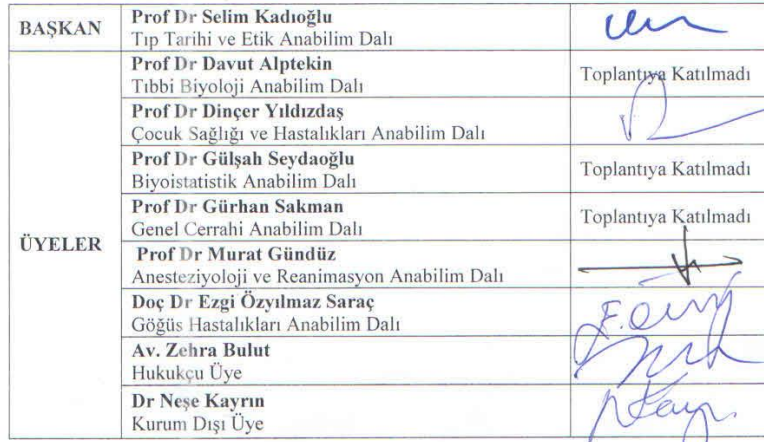 BAŞKAN
Prof Dr Selim Kadıoğlu
Tıp Tarihi ve Etik Anabilim Dalı
ÜYELER
Prof Dr Davut Alptekin
Tıbbi Biyoloji Anabilim Dalı
Toplantıya Katılmadı
Prof Dr Dinçer Yıldızdaş
Çocuk Sağlığı ve Hastalıkları Anabilim Dalı
Prof Dr Gülşah Seydaoğlu
Biyoistatistik Anabilim Dalı
Toplantıya Katılmadı
Prof Dr Gürhan Sakman
Genel Cerrahi Anabilim Dalı
Toplantıya Katılmadı
Prof Dr Murat Gündüz
Anesteziyoloji ve Reanimasyon Anabilim Dalı
Doç Dr Ezgi Özyılmaz Saraç
Göğüs Hastalıkları Anabilim Dalı
Av. Zehra Bulut
Hukukçu Üye
Dr Neşe Kayrın
Kurum Dışı Üye